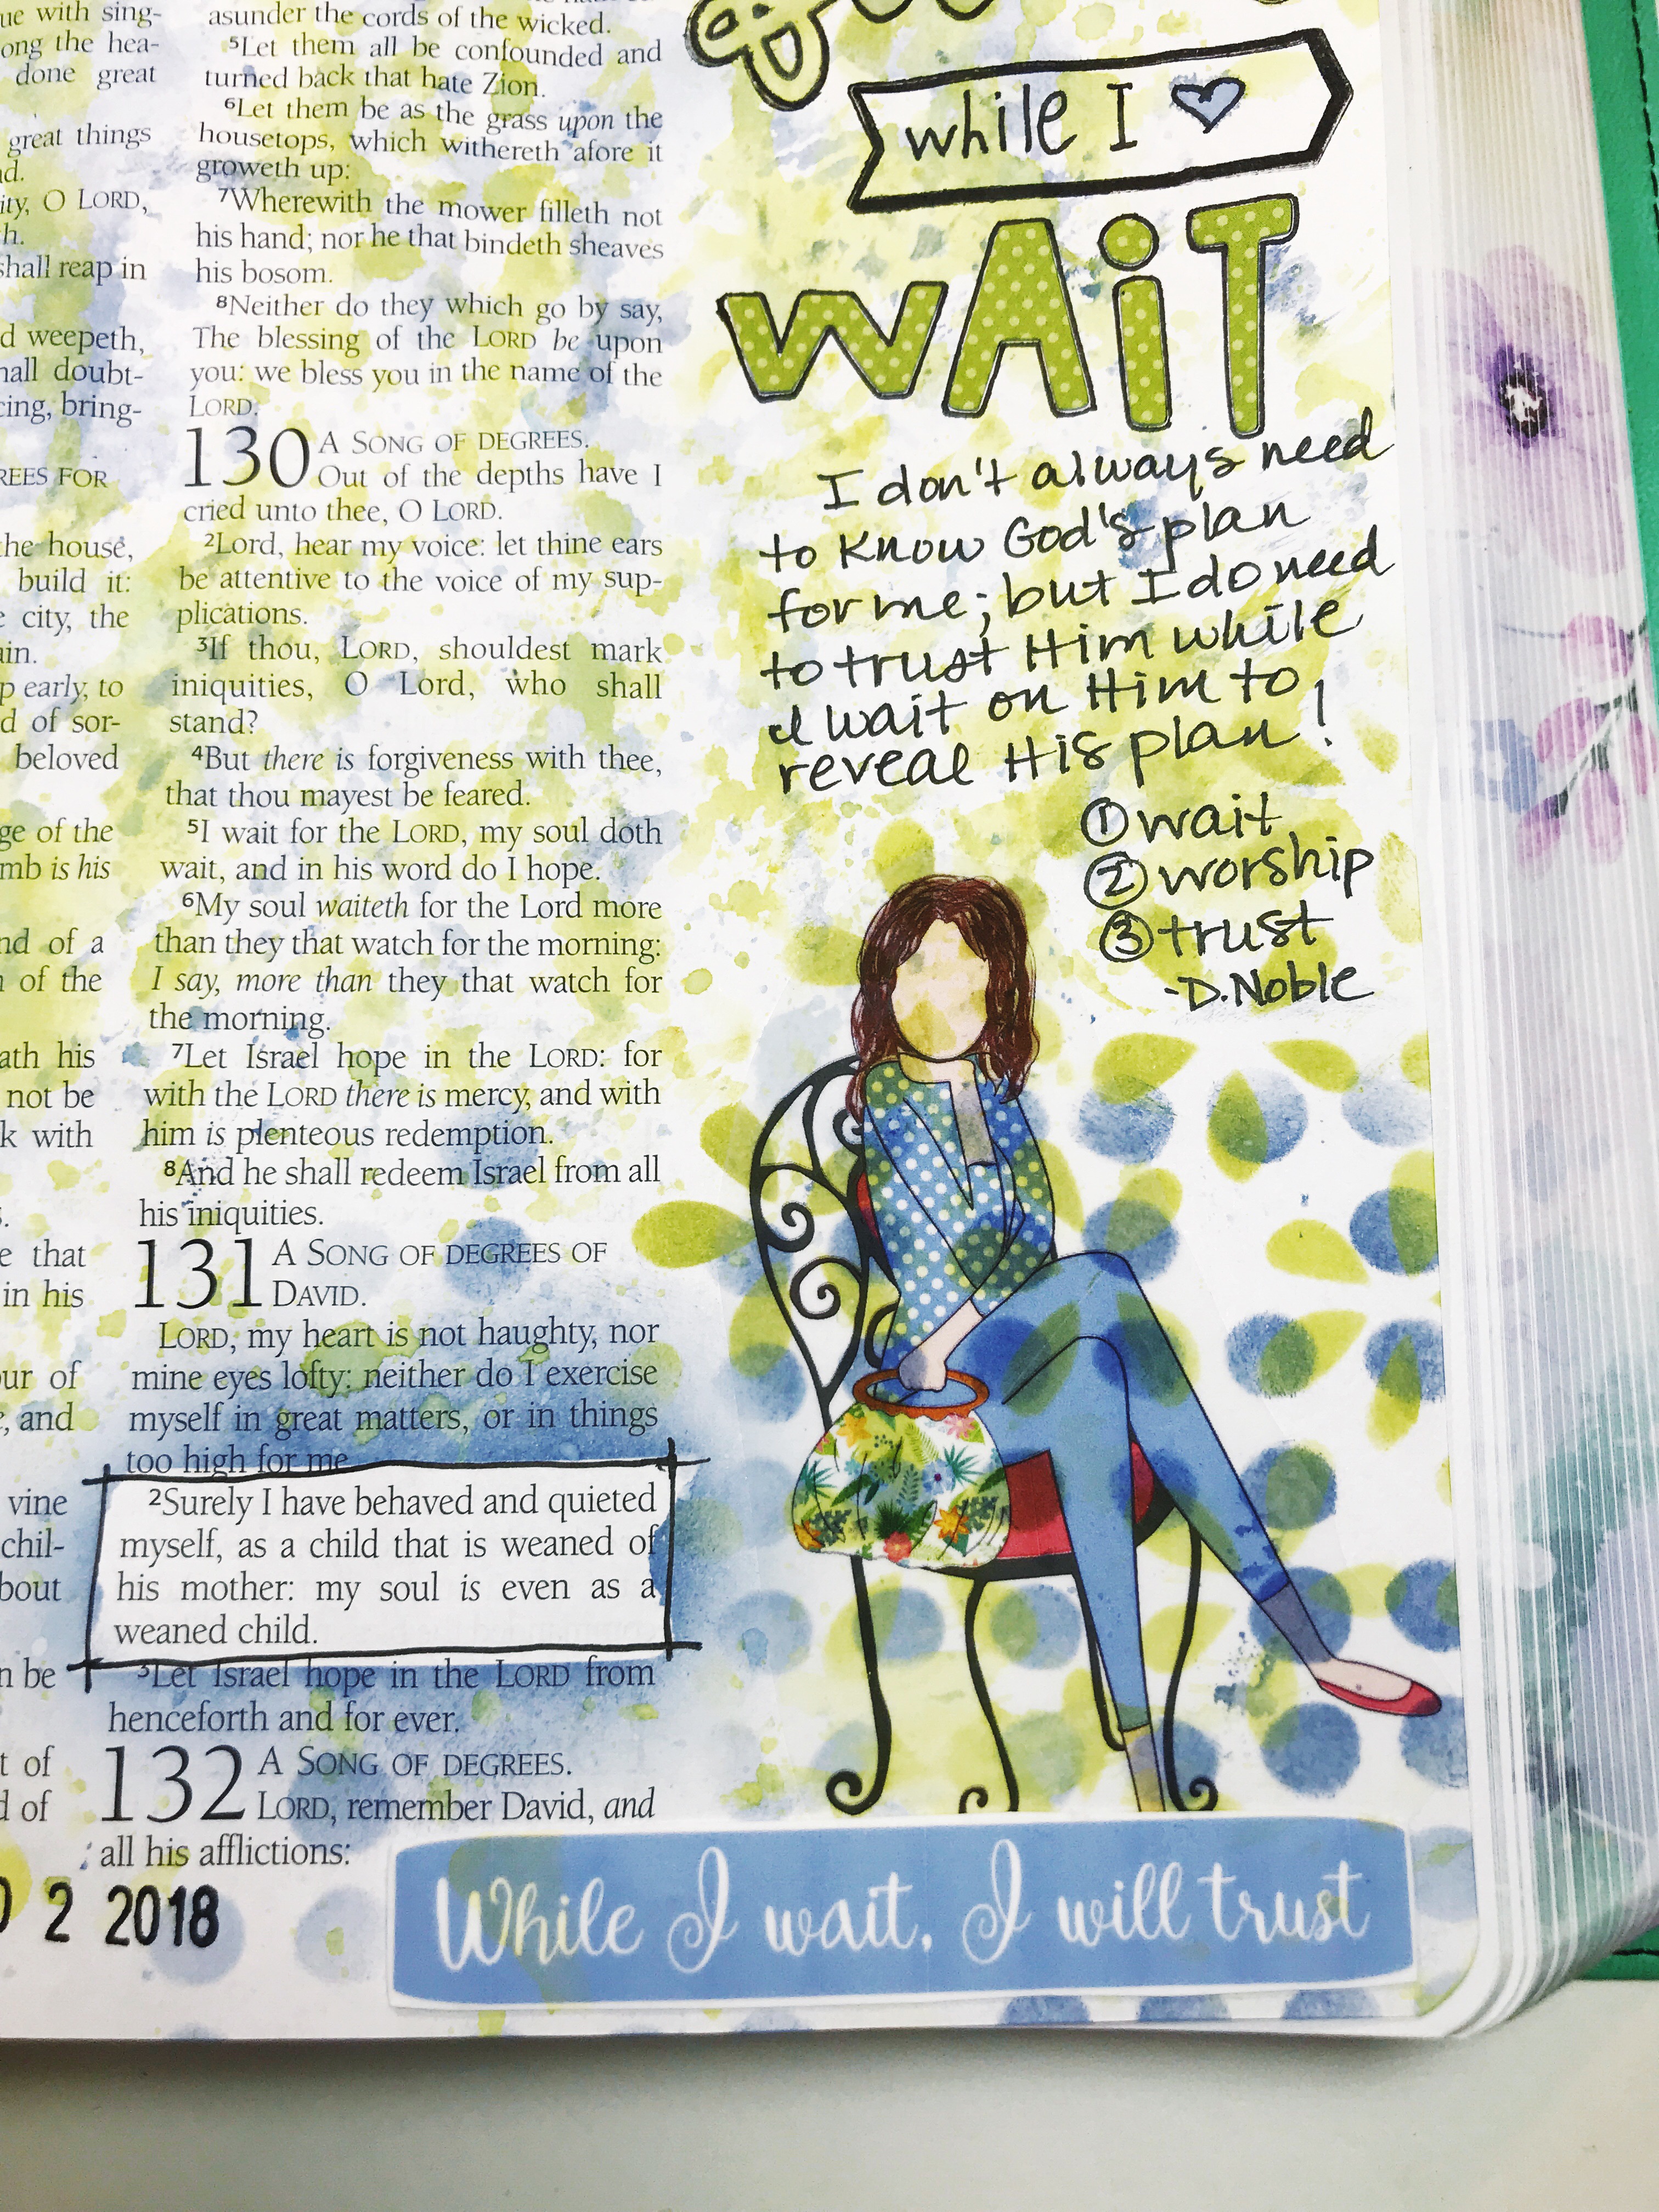 ue with sing-
ong the hea-
done great
great things
ity, O LORD,
h.
shall reap in
d weepeth,
all doubt-
cing, bring-
REES FOR
the house,
build it:
city, the
ain.
p early, to
d of sor-
beloved
ge of the
mb is his
nd of a
of the
ath his
not be
k with
e that
in his
ur of
, and
vine
chil-
bout
n be
t of
d of
asunder the cords of the wicked.
5Let them all be confounded and
turned back that hate Zion.
6Let them be as the grass upon the
housetops, which withereth afore it
groweth up:
7Wherewith the mower filleth not
his hand; nor he that bindeth sheaves
his bosom.
8Neither do they which go by say,
The blessing of the LORD be upon
you: we bless you in the name of the
LORD.
130 A SONG OF DEGREES.
Out of the depths have I
cried unto thee, O LORD.
2Lord, hear my voice: let thine ears
be attentive to the voice of my sup-
plications.
3If thou, LORD, shouldest mark
iniquities, O Lord, who shall
stand?
4But there is forgiveness with thee,
that thou mayest be feared.
5I wait for the LORD, my soul doth
wait, and in his word do I hope.
6My soul waiteth for the Lord more
than they that watch for the morning:
I say, more than they that watch for
the morning.
7Let Israel hope in the LORD: for
with the LORD there is mercy, and with
him is plenteous redemption.
8And he shall redeem Israel from all
his iniquities.
131 A SONG OF DEGREES OF
DAVID.
LORD, my heart is not haughty, nor
mine eyes lofty: neither do I exercise
myself in great matters, or in things
too high for me
2Surely I have behaved and quieted
myself, as a child that is weaned of
his mother: my soul is even as a
weaned child.
3Let Israel hope in the LORD from
henceforth and for ever.
132 A SONG OF DEGREES.
LORD, remember David, and
all his afflictions:
2 2018
while I
WAiT
I don't always need
to know God's plan
for me; but I do need
to trust Him while
I wait on Him to
reveal His plan!
① wait
② worship
③ trust
-D. Noble
While I wait, I will trust